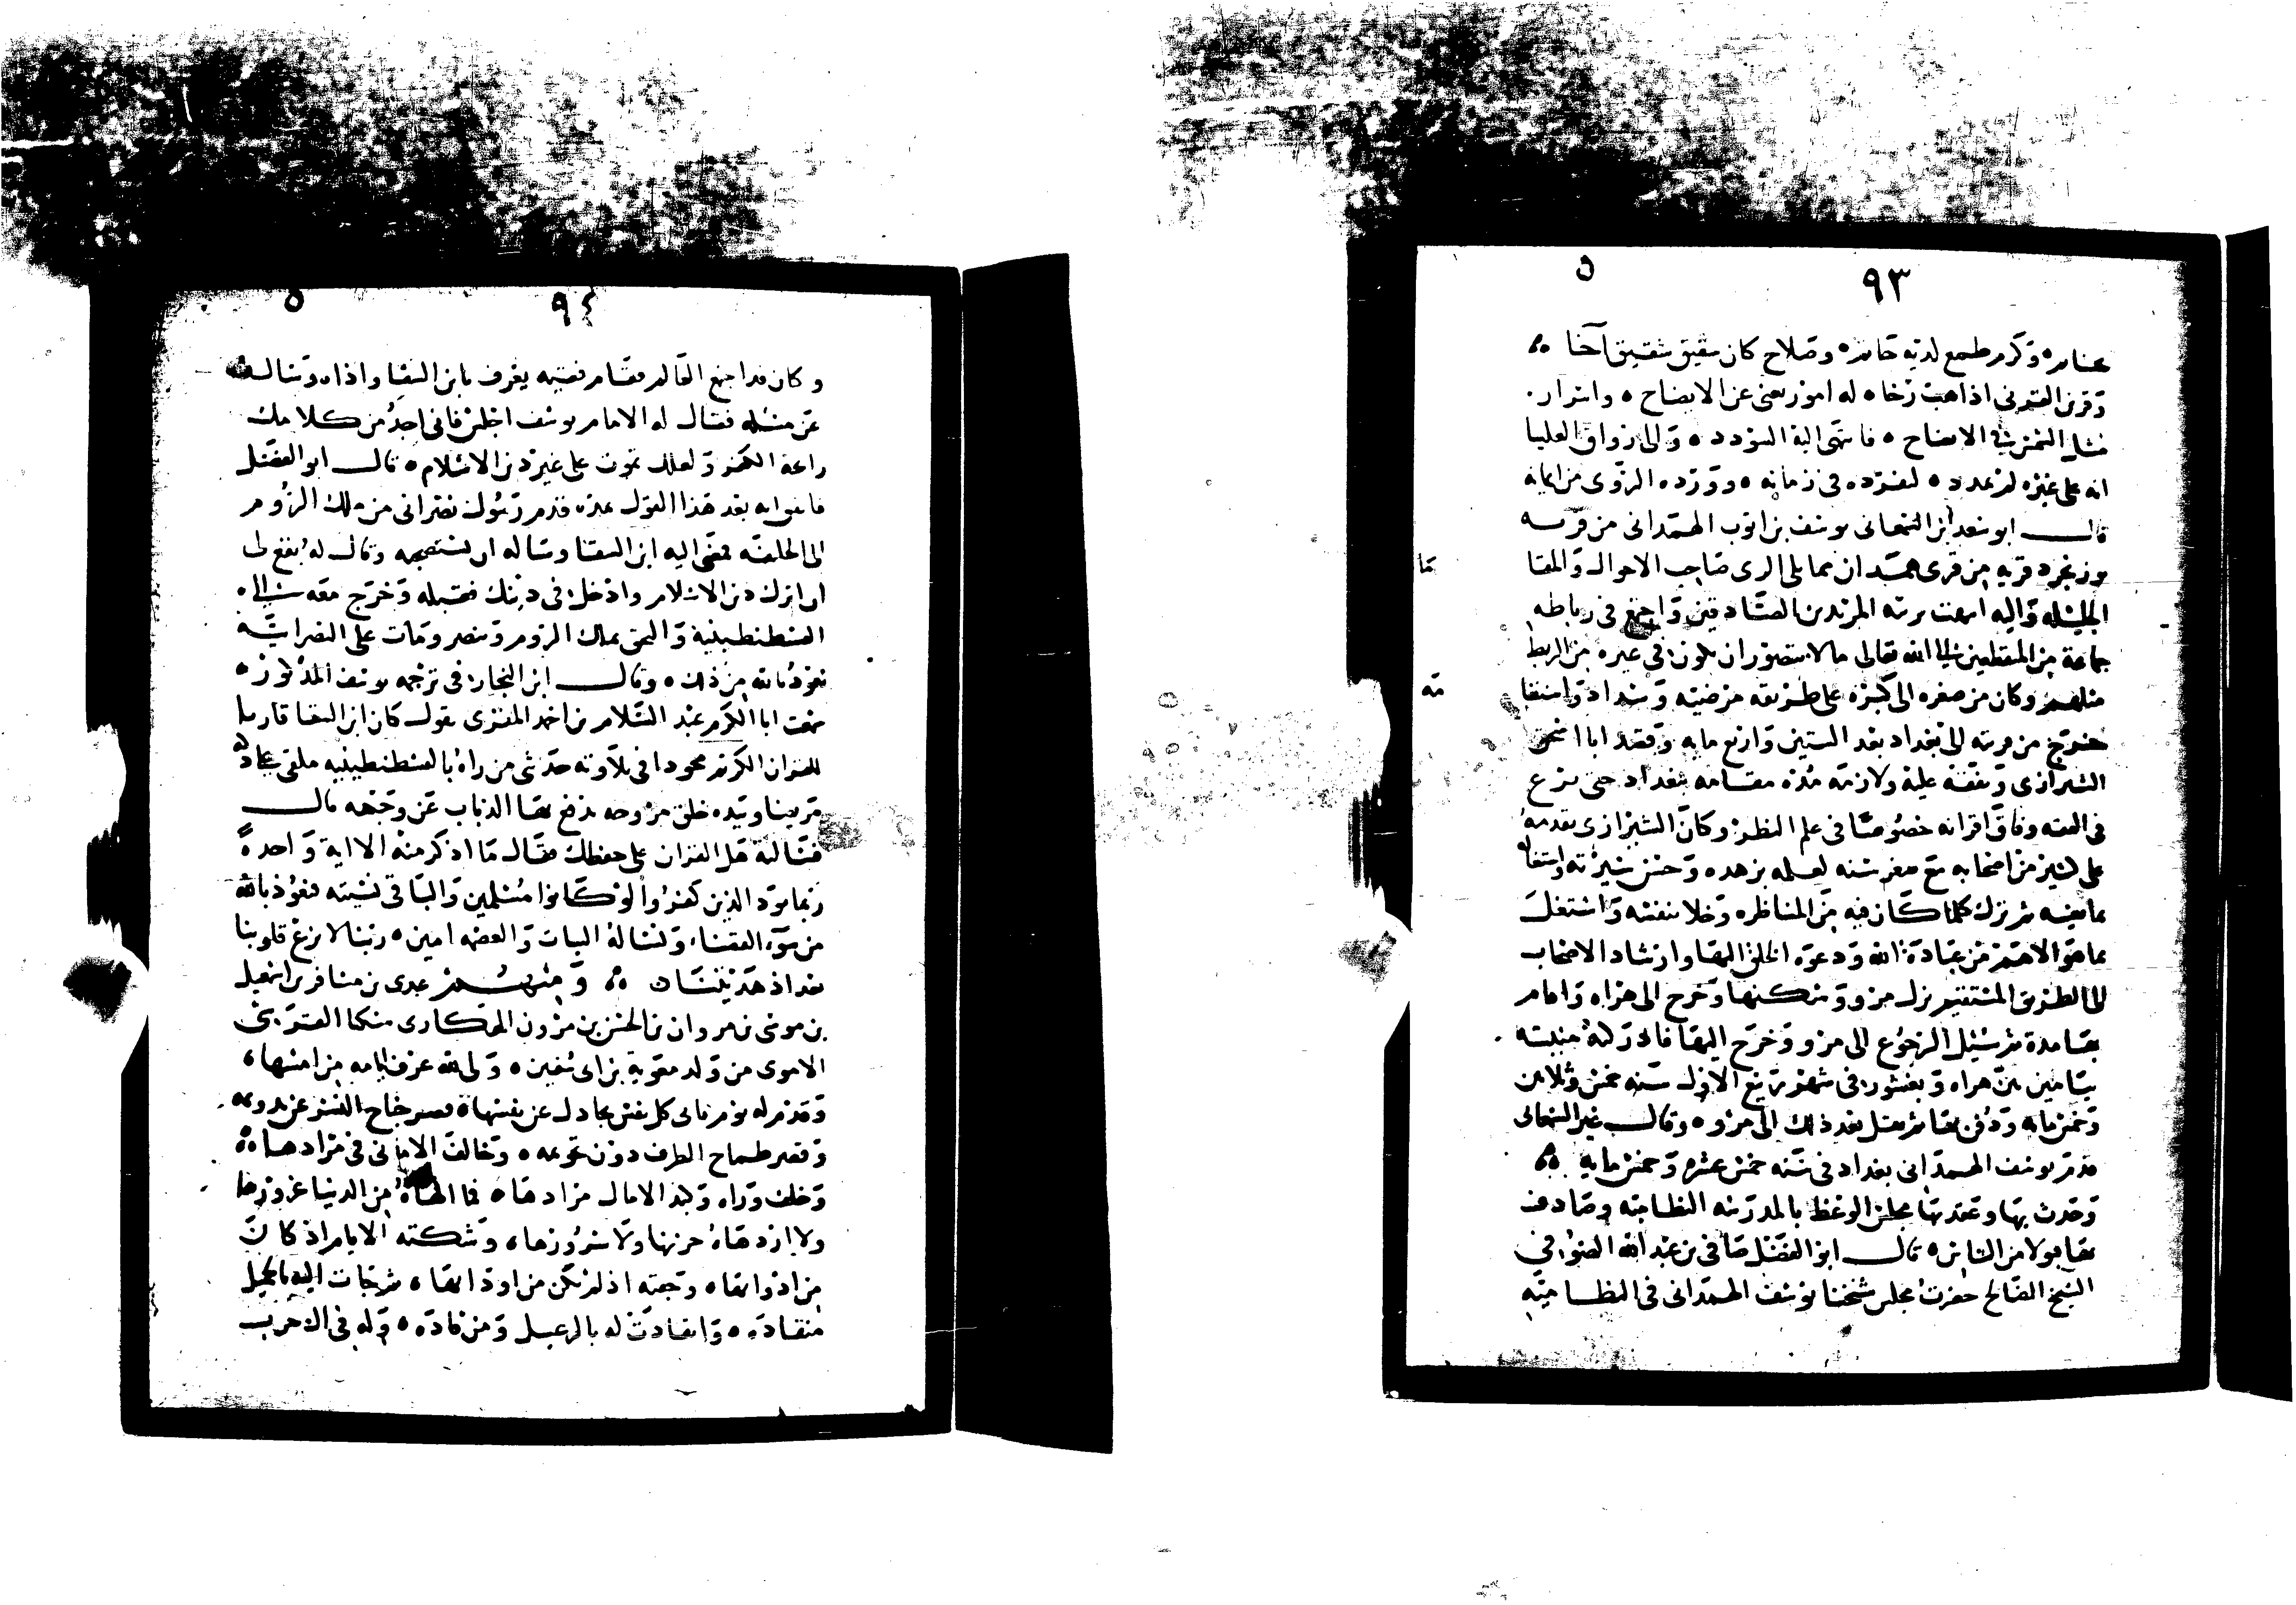 ٩٣
عنابره وكرم طمع لديه حاتره وصلاح كان شقيق شقيق آخا
وقرن القرني اذا هبت رخاه له امور تغني عن الايضاح ه واسرار
مثل الشمس في الايضاح ه فانتهى اليه السؤدد ه والى رواق العليا
انه على غيره لم يمدد ه لتفرده في زمانه ه وورده الروى من ايمانه
قال ابو سعد ابن السمعاني يوسف بن ايوب الهمداني من قرية
بوزنجرد قرية من قرى همدان مما يلي الرى صاحب الاحوال والمقا مات
الجليله واليه انتهت تربية المريدين الصادقين واجتمع في رباطه
جماعة من المنقطعين الى الله تعالى ما لا يتصور ان يكون في غيره من الربط
مثلهم وكان من صغره الى كبره على طريقه مرضيته وسداد واستقا مه
خرج من قريته الى بغداد بعد الستين واربع مايه وقصد ابا اسحق
الشيرازى وتفقه عليه ولازمه مدة مقامه ببغداد حتى برع
في الفقه وفاق اقرانه خصوصا في علم النظر وكان الشيرازى يقدمه
على كثير من اصحابه مع صغر سنه لعلمه بزهده وحسن سيرته واشتغاله
بما يعنيه ثم ترك كلما كان فيه من المناظره وخلا بنفسه واشتغل
بما هو الاهم من عبادة الله ودعوة الخلق اليها وارشاد الاصحاب
الى الطريق المستقيم نزل مرو وسكنها وخرج الى هراه واقام
بها مدة ثم سئل الرجوع الى مرو وخرج اليها فادركته منيته
بيامين بين هراه وبغشور في شهر ربيع الاول سنه خمس وثلاثين
وخمس مايه ودفن بها ثم نقل بعد ذلك الى مرو ه وقال غير السمعاني
قدم يوسف الهمداني بغداد في سنه خمس عشره وخمس مايه
وحدث بها وعقد بها مجلس الوعظ بالمدرسه النظاميه وصادف
بها قبولا من الناس ه قال ابو الفضل صافي بن عبد الله الصوفي
الشيخ الصالح حضرت مجلس شيخنا يوسف الهمداني في النظاميه
٩٤
وكان قد اجتمع العالم فقام فقيه يعرف بابن السقا واذاه وساله
عن مسئله فقال له الامام يوسف اجلس فاني اجد من كلامك
رايحة الكفر ولعلك تموت على غير دين الاسلام ه قال ابو الفضل
فاتفق انه بعد هذا القول بمده قدم رسول نصراني من ملك الروم
الى الخليفه فمضى اليه ابن السقا وساله ان يستصحبه وقال له يقع لي
ان اترك دين الاسلام وادخل في دينك فقبله وخرج معه الى
القسطنطينية والتحق بملك الروم وتنصر ومات على النصرانيه
نعوذ بالله من ذلك ه وقال ابن النجار في ترجمة يوسف المذكور ه
سمعت ابا الكرم عبد السلام بن احمد المقرى يقول كان ابن السقا قاريا
للقران الكريم مجودا في تلاوته حدثني من راه بالقسطنطينيه ملقى على دكه
مريضا وبيده خلق مروحه يدفع بها الذباب عن وجهه قال
فسالته هل القران على حفظك فقال ما اذكر منه الا اية واحدة
ربما يود الذين كفروا لو كانوا مسلمين والباقي نسيته فنعوذ بالله
من سوء القضاء ونساله الثبات والعصمه امين ه ربنا لا تزغ قلوبنا
بعد اذ هديتنا ه ومنهم عدى بن مسافر بن اسمعيل
بن موسى بن مروان بن الحسن بن مروان الهكارى مسكنا
الاموى من ولد معويه بن ابي سفين ه ولي لله عرف ايامه من امسها ه
وقدم له يوم تاتى كل نفس تجادل عن نفسها ه
وقصر طماح الطرف دون ه وخالف الاماني في مرادها ه
وخلف وراه الامال مرادها ه فما الهاه من الدنيا غرورها
ولا ازدهاه حزنها ولا سرورها ه وشكته الايام اذ كان
من اذوايها ه وجفته اذ لم تكن من اودايها ه ثم جات اليه بالجميل
منقاده ه وانقادت له بالرعيل ومن قاده ه وله في الاخرب